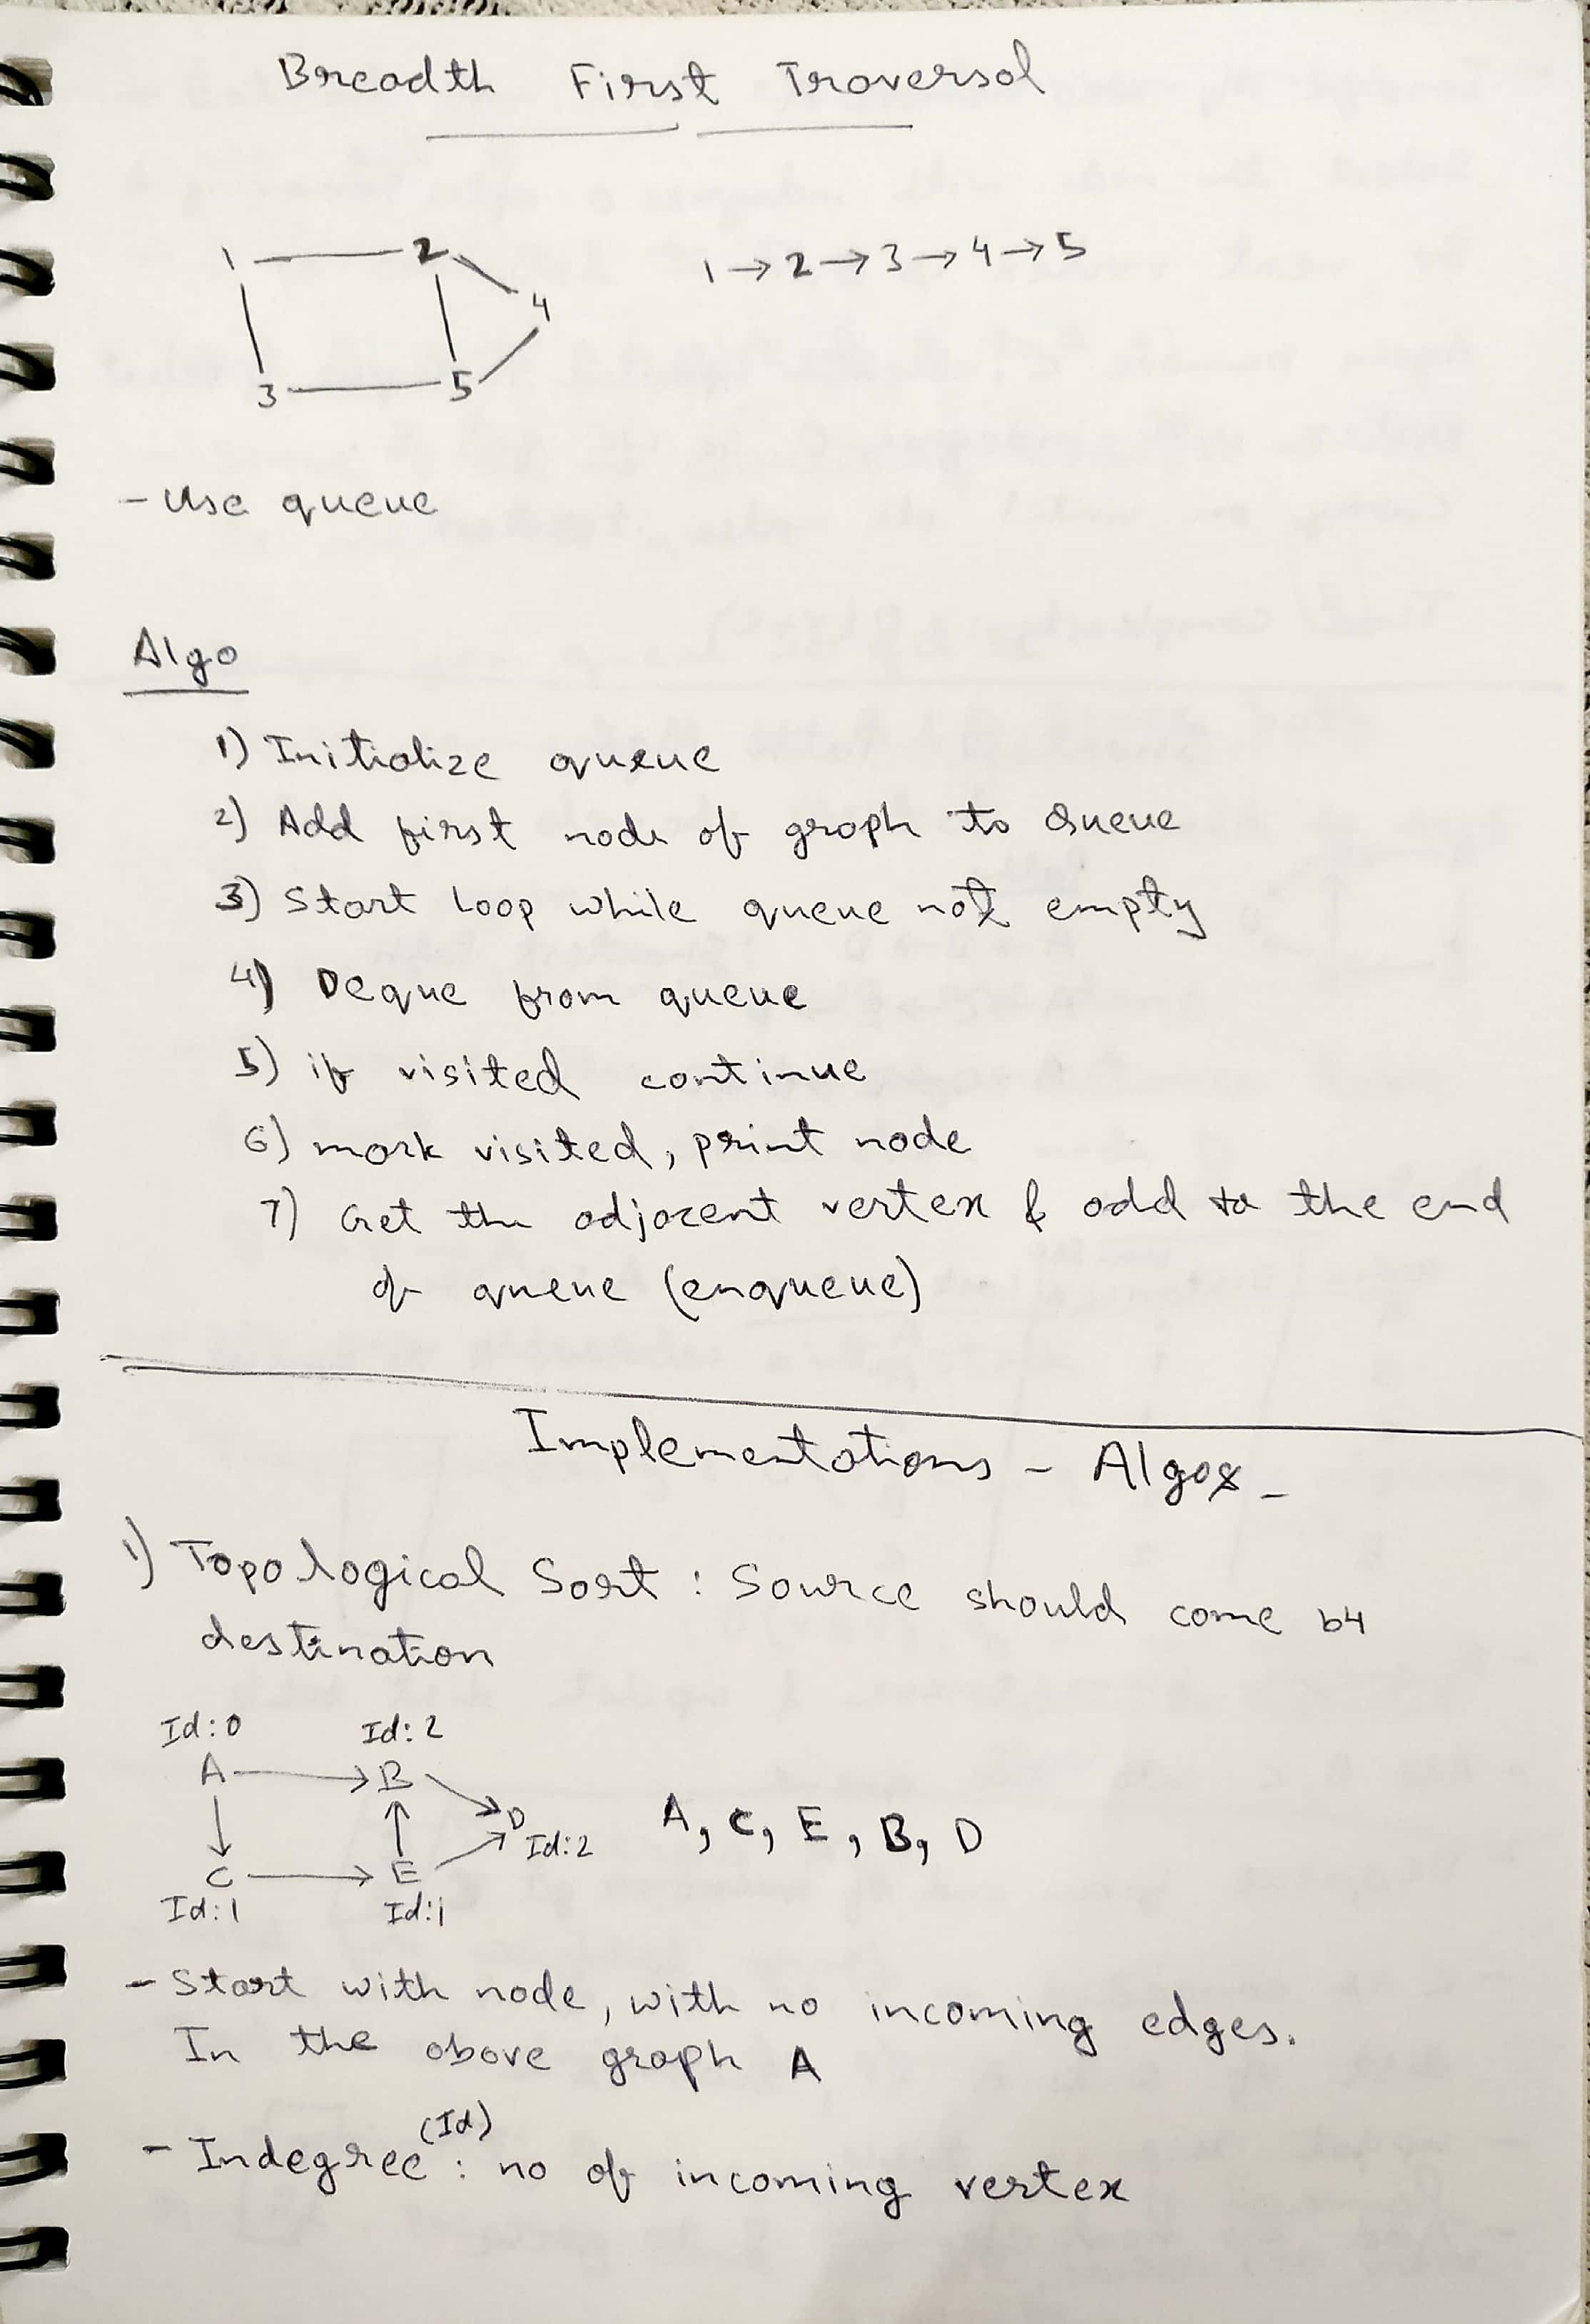 Breadth First Traversal
1 2 1→2→3→4→5
4
3 5
- Use queue
Algo
1) Initialize queue
2) Add first node of graph to Queue
3) Start Loop while queue not empty
4) Deque from queue
5) if visited continue
6) mark visited, print node
7) Get the adjacent vertex & add to the end
of queue (enqueue)
Implementations - Algos -
1) Topological Sort : Source should come b4
destination
Id:0 Id:2
A B
D A, C, E, B, D
Id:2
C E
Id:1 Id:1
- Start with node, with no incoming edges.
In the above graph A
(Id)
- Indegree : no of incoming vertex